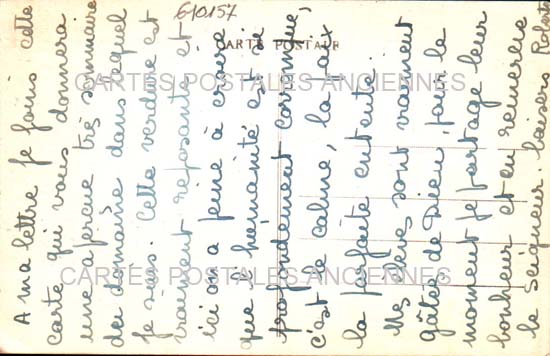 610157
CARTE POSTALE
A ma lettre je joins cette
carte qui vous donnera
une aperçue très sommaire
du domaine dans lequel
je suis. Cette verdure est
vraiment reposante et
ici on a peine à croire
que l'humanité est si
profondément corrompue,
c'est le calme, la paix
la parfaite entente.
Mes élèves sont vraiment
gâtées de Dieu, pour le
moment je partage leur
bonheur et en remercie
le Seigneur. baisers Roberte
CARTES POSTALES ANCIENNES
CARTES POSTALES ANCIENNES